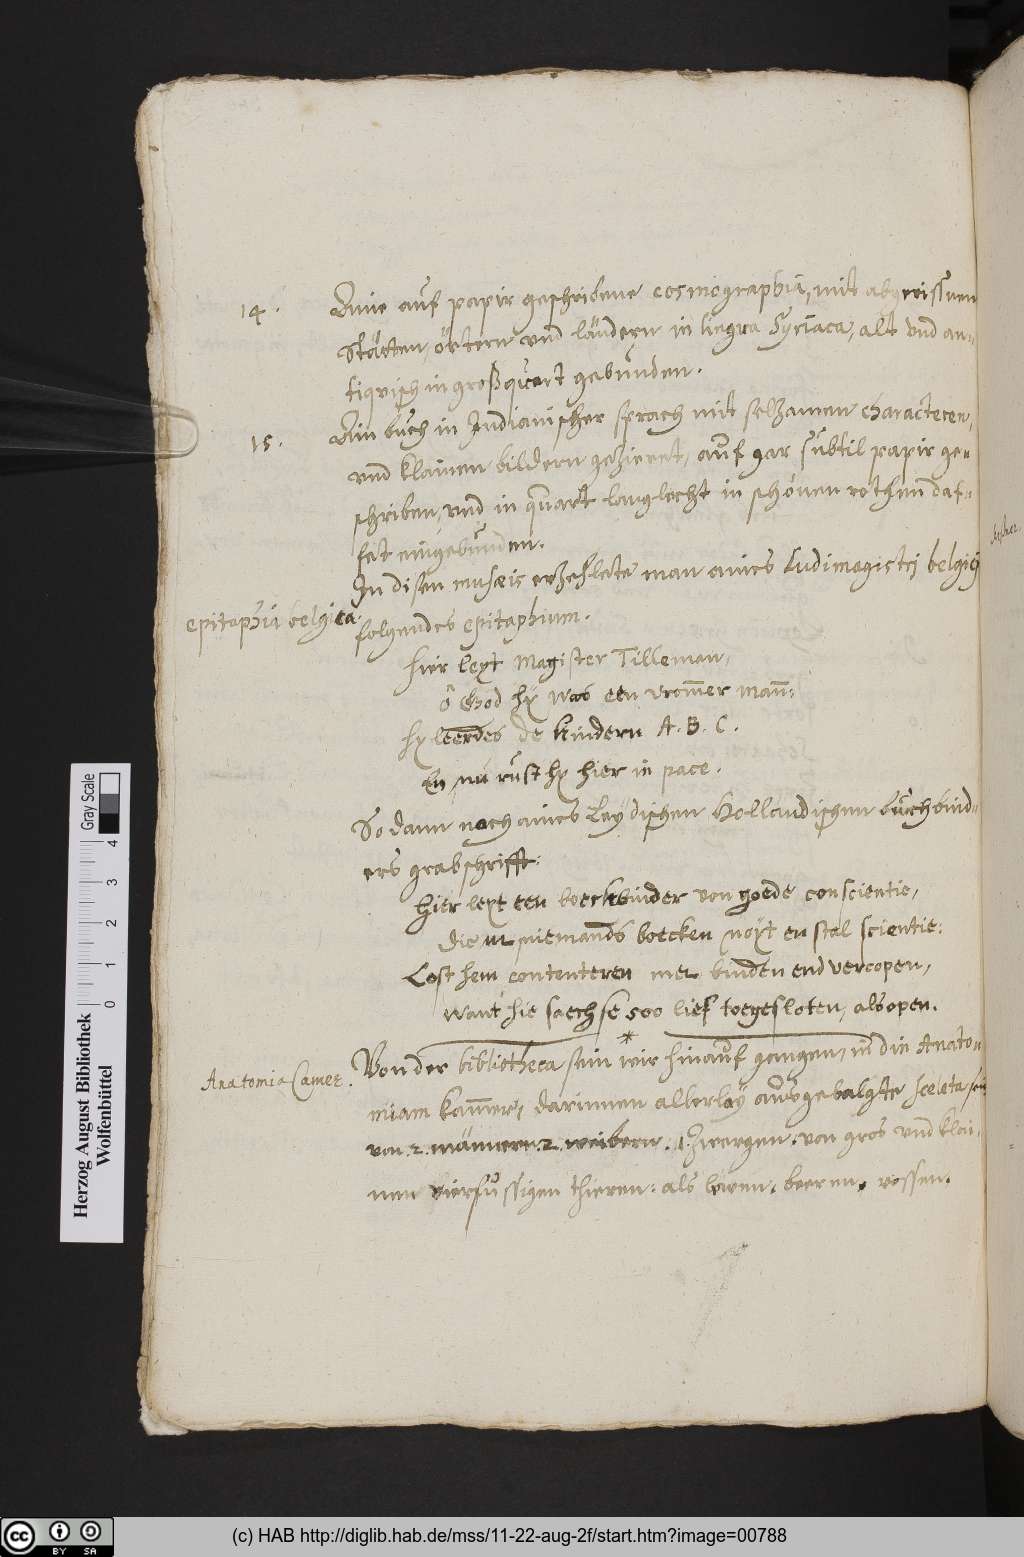 14. Aine auf papir geschribene cosmographia, mit abgerissnen
stätten, örtern und ländern in lingua Syriaca, alt und an-
tiquisch in groß quart gebunden.
15. Ain buch in Indianischer sprach mit selzamen characteren,
und klainen bildern gezieret, auf gar subtil papir ge-
schriben, und in quart langlecht in schönen rothen daf-
fet eingebunden.
In disen musæis erzehlete man aines Ludimagistrj belgicj
epitaphia belgica. folgendes epitaphium.
hier leyt Magister Tilleman,
ô God hy was een vrom̄er man̄:
hy leerdes de kindern A. B. C.
En nu rust hy hier in pace.
So dann noch aines Leydischen Hollandischen buchbind-
ers grabschrifft:
hier leyt een boeckbinder von goede conscientie,
die ut niemands boecken noyt en stal scientie:
Lost hem contenteren met binden end vercopen,
want hie saech se soo lief toegesloten, als open.
*
Anatomia Camer. Von der bibliotheca sein wir hinauf gangen, in die Anato-
miam kam̄er, darinnen allerley ausgebalgste sceleta sein
von 2. männern. 2. weibern. 1. zwergen. von gros und klai-
nen vierfüssigen thieren: als lewen, beeren, rossen.
Herzog August Bibliothek
Wolfenbüttel
0 1 2 3 4
Gray Scale
cc BY SA
(c) HAB http://diglib.hab.de/mss/11-22-aug-2f/start.htm?image=00788